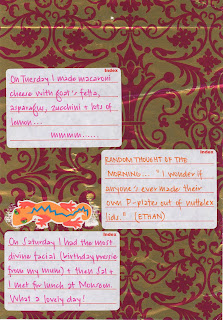 Index
On Tuesday I made macaroni
cheese with goat's fetta,
asparagus, zucchini + lots of
lemon...
mmmm.....
Index
RANDOM THOUGHT OF THE
MORNING... "I wonder if
anyone's ever made their
own P-plates out of nuttelex
lids." (ETHAN)
Index
On Saturday I had the most
divine facial (birthday pressie
from my mum) + then Sal +
I met for lunch at Monsoon.
What a lovely day!